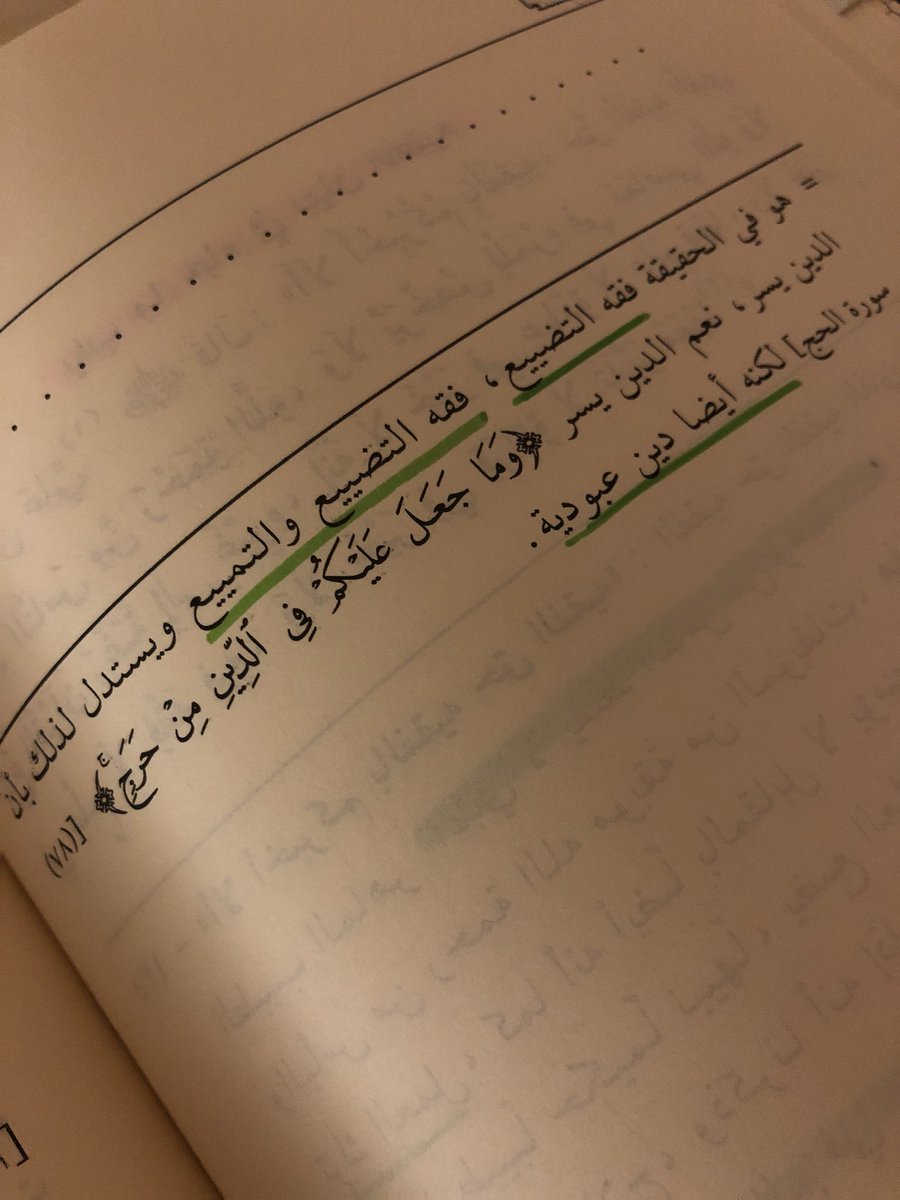 = هو في الحقيقة فقه التضييع، فقه التضييع والتمييع ويستدل لذلك بأن
الدين يسر، نعم الدين يسر ﴿وَمَا جَعَلَ عَلَيْكُمْ فِي ٱلدِّينِ مِنْ حَرَجٍۚ﴾ [(٧٨)
سورة الحج] لكنه أيضا دين عبودية.